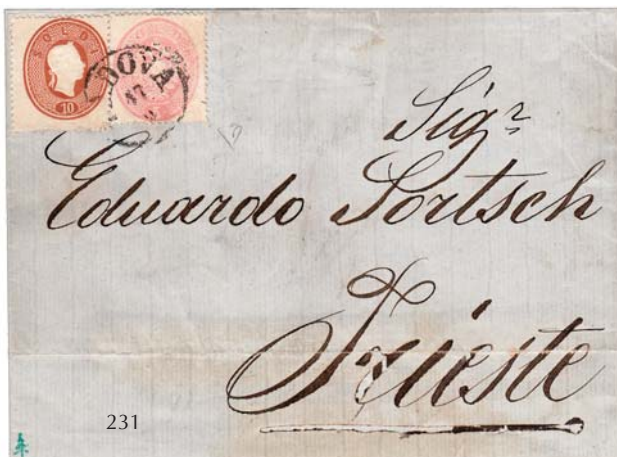 SOLDI
10
DOVA
Sigr
Eduardo Sortsch
Trieste
231